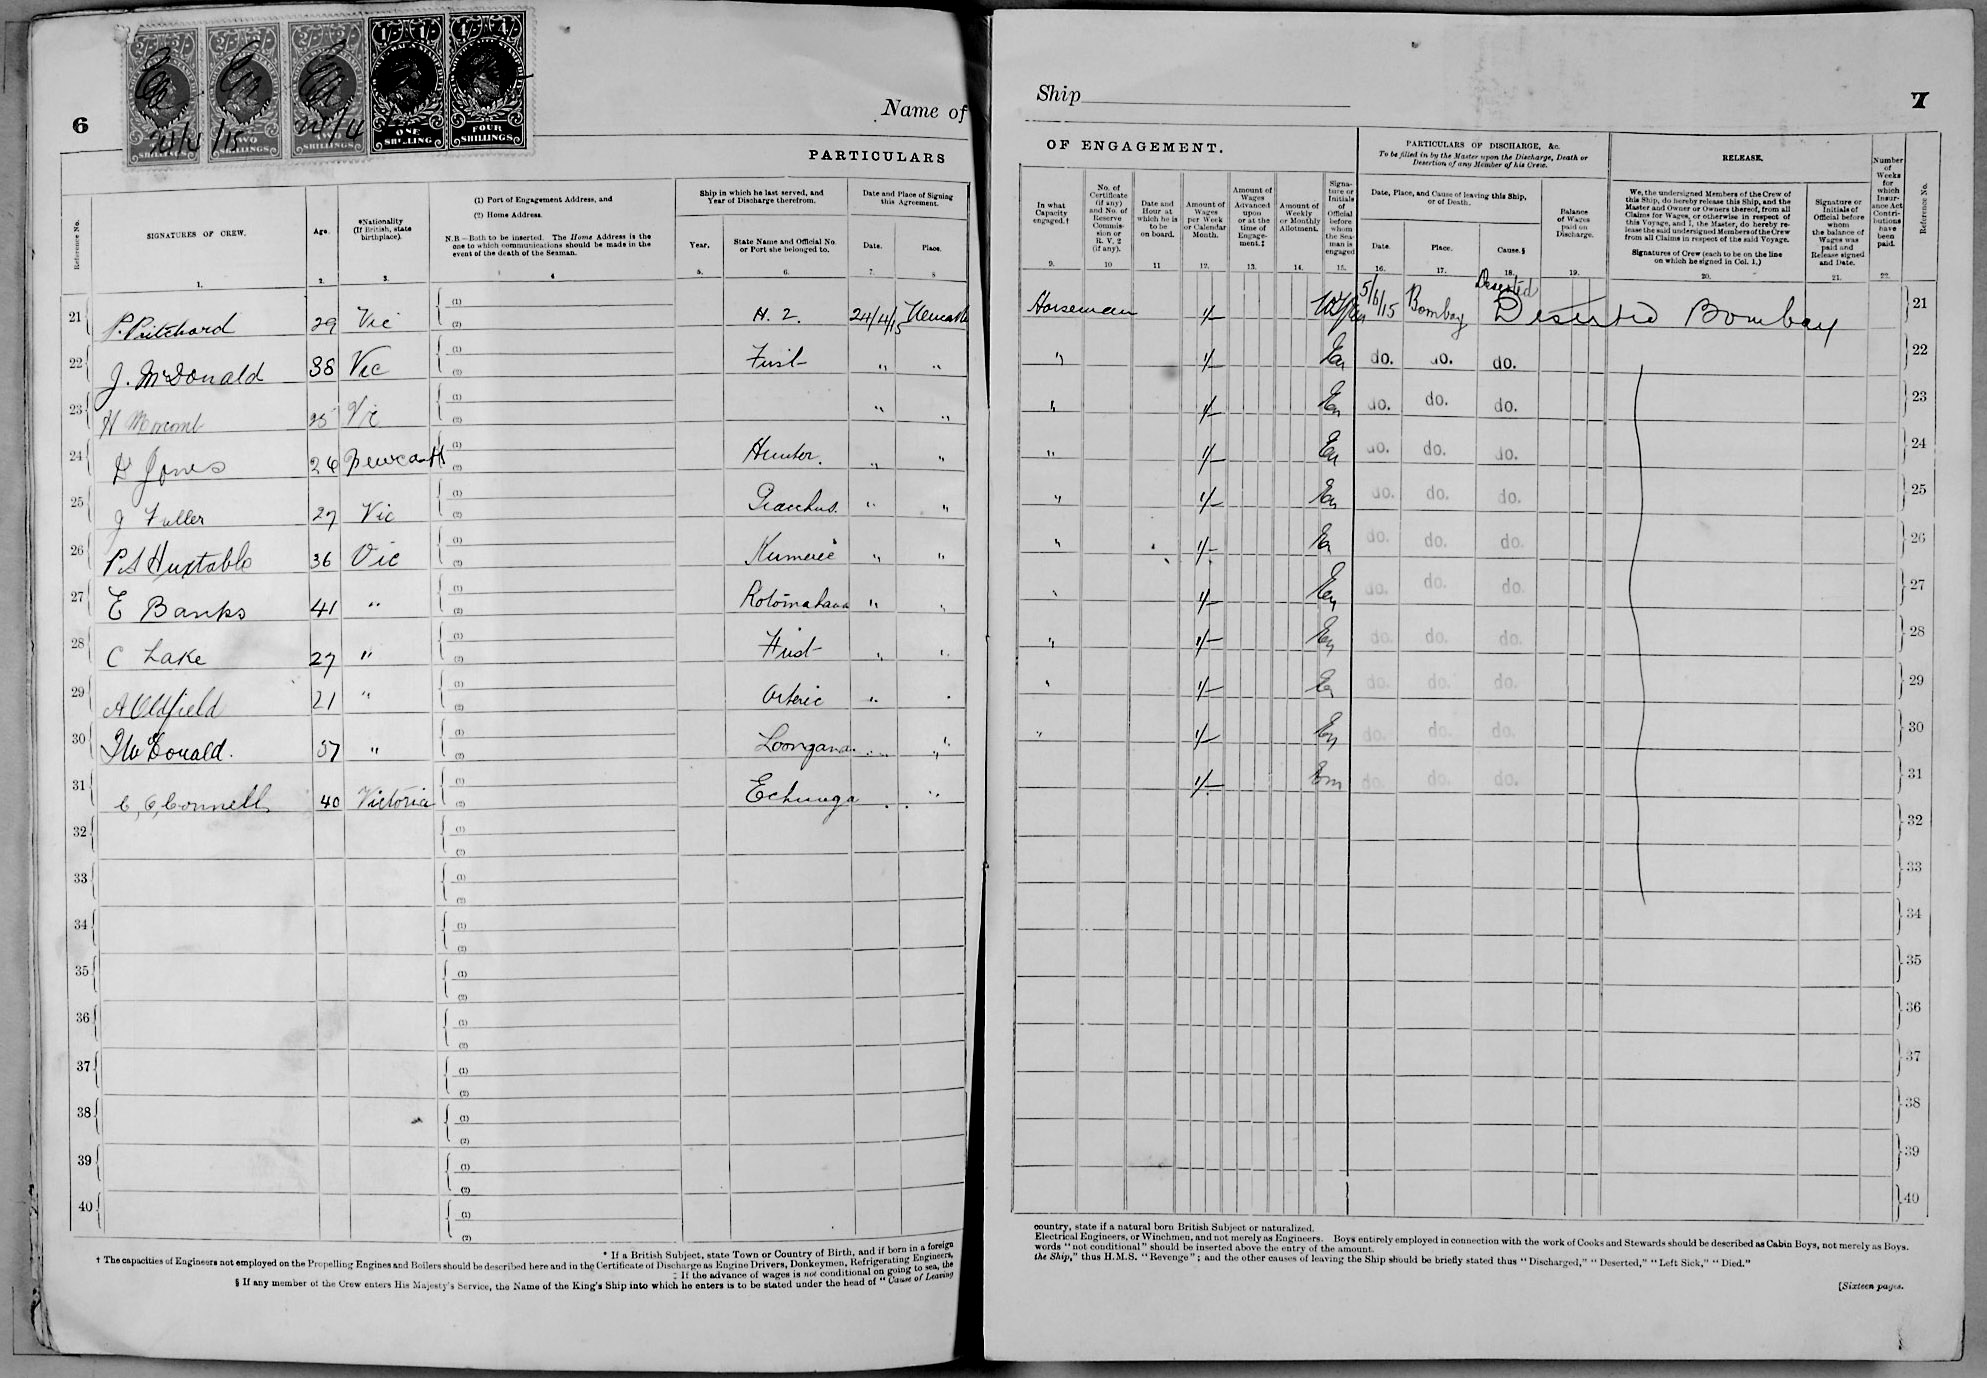 6
TWO SHILLINGS
ONE SHILLING
FOUR SHILLINGS
24/4/15
24/4
Name of
PARTICULARS
Reference No.
SIGNATURES OF CREW.
Age.
*Nationality (If British, state birthplace).
(1) Port of Engagement Address, and
(2) Home Address.
N.B—Both to be inserted. The Home Address is the one to which communications should be made in the event of the death of the Seaman.
Ship in which he last served, and Year of Discharge therefrom.
Year.
State Name and Official No. or Port she belonged to.
Date and Place of Signing this Agreement.
Date.
Place.
1. 2. 3. 4 5. 6. 7. 8
21 P. Pritchard 29 Vic (1) (2) H. 2. 24/4/15
22 J. McDonald 38 Vic (1) (2) First " "
23 H 25 Vic (1) (2) " "
24 D Jones 26 (1) (2) Hunter. " "
25 J Fuller 27 Vic (1) (2) Gracchus. " "
26 P.A Huxtable 36 Vic (1) (2) Kumeric " "
27 E Banks 41 " (1) (2) Rotomahana " "
28 C Lake 27 " (1) (2) First " "
29 A Oldfield 21 " (1) (2) Orteric " "
30 McDonald. 57 " (1) (2) Loongana " "
31 C, O, Connell 40 Victoria (1) (2) Echunga " "
32 (1) (2)
33 (1) (2)
34 (1) (2)
35 (1) (2)
36 (1) (2)
37 (1) (2)
38 (1) (2)
39 (1) (2)
40 (1) (2)
* If a British Subject, state Town or Country of Birth, and if born in a foreign
† The capacities of Engineers not employed on the Propelling Engines and Boilers should be described here and in the Certificate of Discharge as Engine Drivers, Donkeymen, Refrigerating Engineers,
‡ If the advance of wages is not conditional on going to sea, the
§ If any member of the Crew enters His Majesty's Service, the Name of the King's Ship into which he enters is to be stated under the head of "Cause of Leaving
Ship
7
OF ENGAGEMENT.
PARTICULARS OF DISCHARGE, &c.
To be filled in by the Master upon the Discharge, Death or Desertion of any Member of his Crew.
RELEASE.
In what Capacity engaged.†
No. of Certificate (if any) and No. of Reserve Commission or R. V. 2 (if any).
Date and Hour at which he is to be on board.
Amount of Wages per Week or Calendar Month.
Amount of Wages Advanced upon or at the time of Engagement.‡
Amount of Weekly or Monthly Allotment.
Signature or Initials of Official before whom the Seaman is engaged
Date, Place, and Cause of leaving this Ship, or of Death.
Date.
Place.
Cause.§
Balance of Wages paid on Discharge.
We, the undersigned Members of the Crew of this Ship, do hereby release this Ship, and the Master and Owner or Owners thereof, from all Claims for Wages, or otherwise in respect of this Voyage, and I, the Master, do hereby release the said undersigned Members of the Crew from all Claims in respect of the said Voyage.
Signatures of Crew (each to be on the line on which he signed in Col. 1.)
Signature or Initials of Official before whom the balance of Wages was paid and Release signed and Date.
Number of Weeks for which Insurance Act Contributions have been paid.
Reference No.
9. 10 11 12. 13. 14. 15. 16. 17. 18. 19. 20. 21. 22.
Horseman 1/- 5/6/15 Bombay Deserted Deserted Bombay 21
" 1/- do. do. do. 22
" 1/- do. do. do. 23
" 1/- do. do. do. 24
" 1/- do. do. do. 25
" 1/- do. do. do. 26
" 1/- do. do. do. 27
" 1/- do. do. do. 28
" 1/- do. do. do. 29
" 1/- do. do. do. 30
1/- do. do. do. 31
32
33
34
35
36
37
38
39
40
country, state if a natural born British Subject or naturalized.
Electrical Engineers, or Winchmen, and not merely as Engineers. Boys entirely employed in connection with the work of Cooks and Stewards should be described as Cabin Boys, not merely as Boys.
words "not conditional" should be inserted above the entry of the amount.
the Ship," thus H.M.S. "Revenge"; and the other causes of leaving the Ship should be briefly stated thus "Discharged," "Deserted," "Left Sick," "Died."
[Sixteen pages.